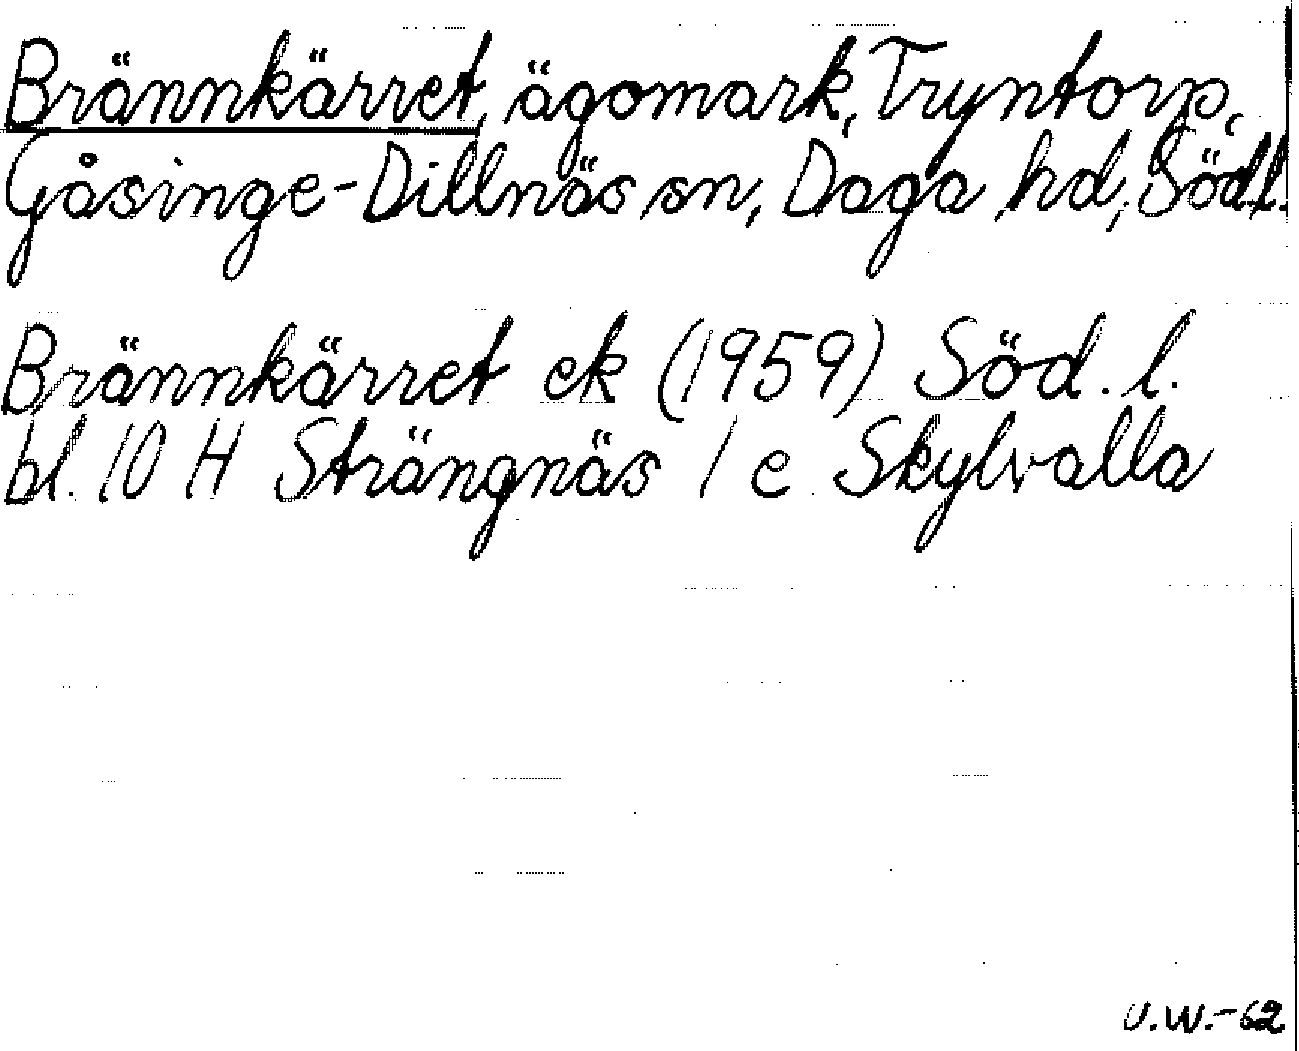 Brännkärret, ägomark, Tryntorp,
Gåsinge-Dillnäs sn, Daga hd, Södl.
Brännkärret ek (1959) Söd. l.
bl. 10 H Strängnäs 1 e Skylvalla
U.W.-62